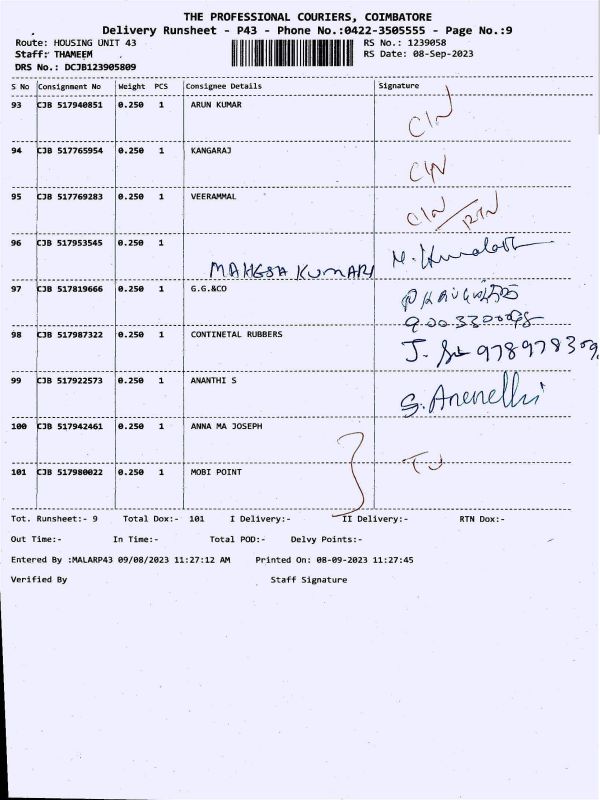 THE PROFESSIONAL COURIERS, COIMBATORE
Delivery Runsheet - P43 - Phone No.:0422-3505555 - Page No.:9
Route: HOUSING UNIT 43 RS No.: 1239058
Staff: THAMEEM RS Date: 08-Sep-2023
DRS No.: DCJB123905809
S No Consignment No Weight PCS Consignee Details Signature
93 CJB 517940851 0.250 1 ARUN KUMAR CIN
94 CJB 517765954 0.250 1 KANGARAJ CIN
95 CJB 517769283 0.250 1 VEERAMMAL CIN / RTN
96 CJB 517953545 0.250 1
MAHESH KUMARI
97 CJB 517819666 0.250 1 G.G.&CO
98 CJB 517987322 0.250 1 CONTINETAL RUBBERS
99 CJB 517922573 0.250 1 ANANTHI S
100 CJB 517942461 0.250 1 ANNA MA JOSEPH
101 CJB 517980022 0.250 1 MOBI POINT
Tot. Runsheet:- 9 Total Dox:- 101 I Delivery:- II Delivery:- RTN Dox:-
Out Time:- In Time:- Total POD:- Delvy Points:-
Entered By :MALARP43 09/08/2023 11:27:12 AM Printed On: 08-09-2023 11:27:45
Verified By Staff Signature